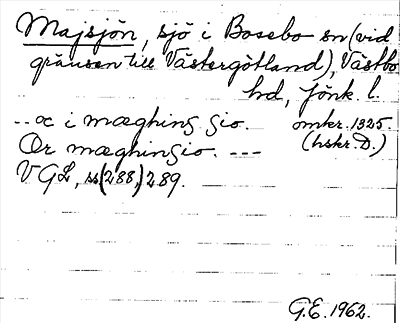 Majsjön, sjö i Bosebo sn (vid
gränsen till Västergötland), Västbo
hd, Jönk. l.
-- oc i mæghing sio. omkr. 1325.
Or mæghingsio. --- (hskr. D.)
VGL, ss (288,) 289.
G.E. 1962.